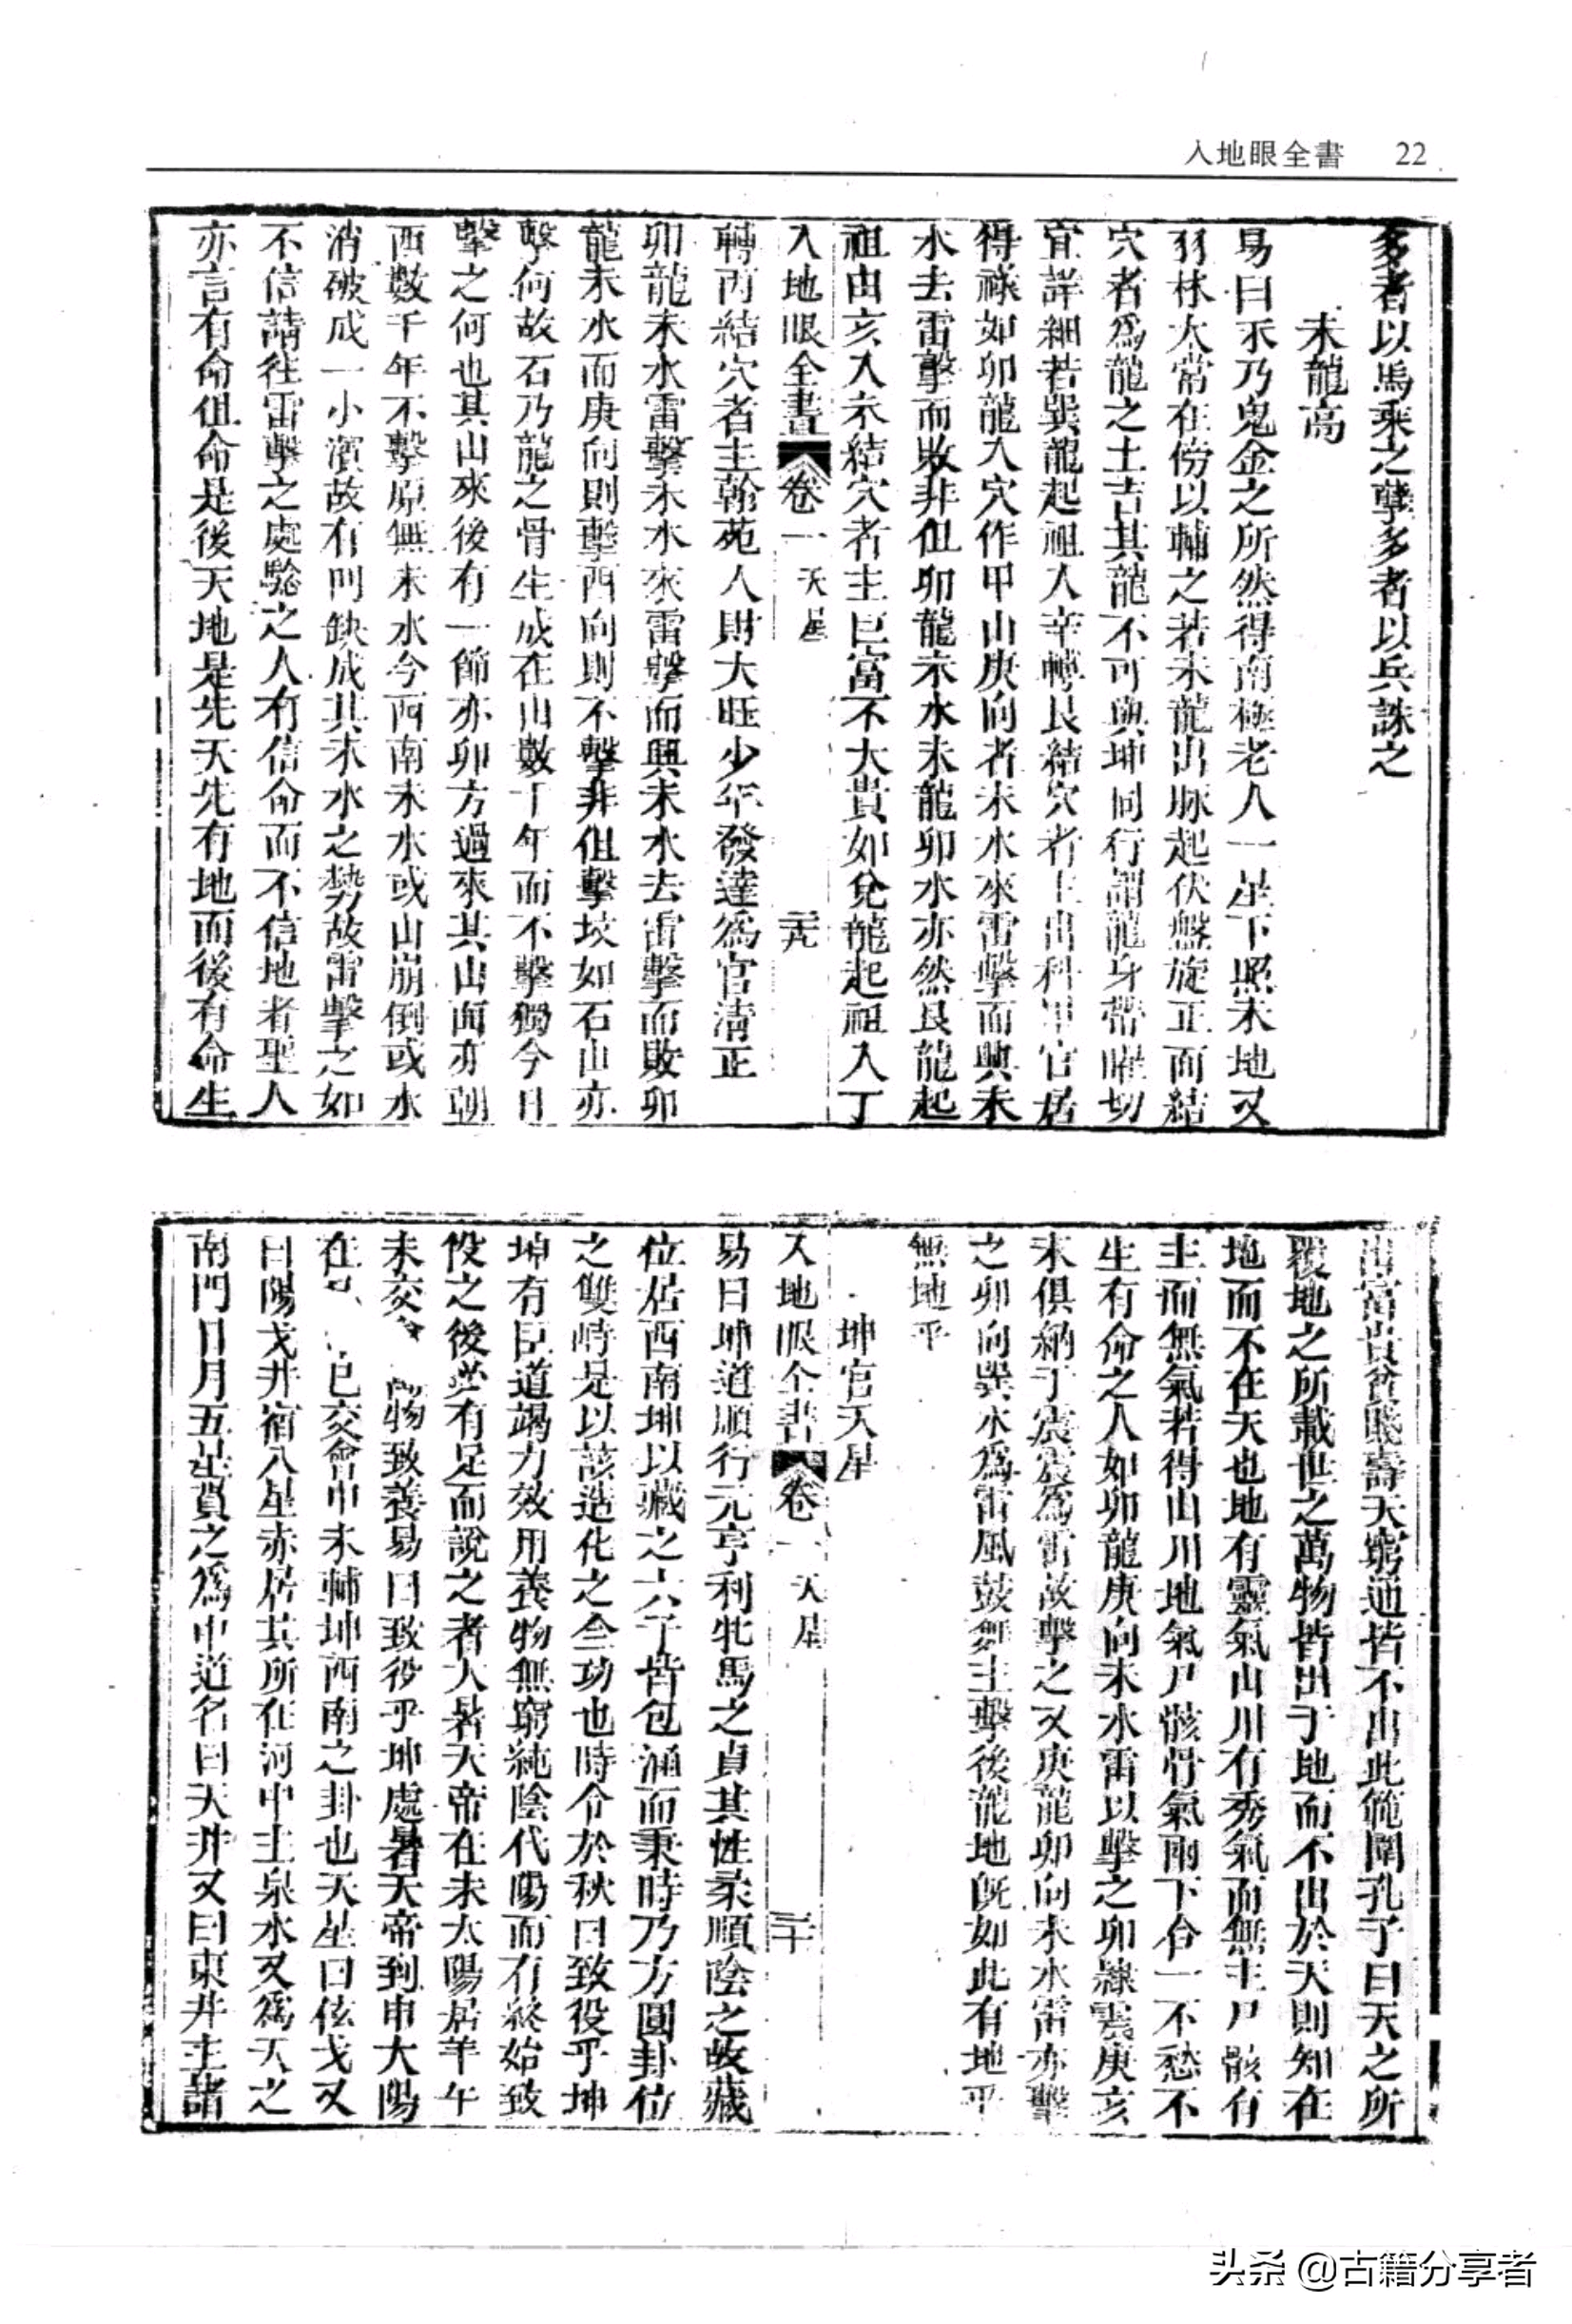 入地眼全書 22
多者以馬乘之孽多者以兵誅之
未龍高
易曰未乃鬼金之所然得南極老人一星下照未地又
羽林太常在傍以輔之若未龍出脉起伏盤旋正面結
穴者爲龍之土吉其龍不可與坤同行謂龍身帶曜切
宜詳細若巽龍起祖入辛轉艮結穴者主出科甲官居
得祿如卯龍入穴作甲山庚向者未水來雷擊而興未
水去雷擊而敗非但卯龍未水未龍卯水亦然艮龍起
祖由亥入未結穴者主巨富不大貴如兌龍起祖入丁
入地眼全書 卷一 天星 二十九
轉丙結穴者主翰苑人財大旺少年發達爲官清正
卯龍未水雷擊未水來雷擊而興未水去雷擊而敗卯
龍未水而庚向則擊酉向則不擊非但擊坟如石山亦
擊何故石乃龍之骨生成在山數千年而不擊獨今日
擊之何也其山來後有一節亦卯方過來其山面亦朝
西數千年不擊原無未水今西南未水或山崩倒或水
消破成一小濱故有凹缺成其未水之勢故雷擊之如
不信請往雷擊之處騐之人有信命而不信地者聖人
亦言有命但命是後天地是先天先有地而後有命生
出富貴貧賤壽夭窮通皆不出此範圍孔子曰天之所
覆地之所載世之萬物皆出于地而不出於天則知在
地而不在天也地有靈氣山川有秀氣而無主尸骸有
主而無氣若得山川地氣尸骸骨氣兩下合一不愁不
生有命之人如卯龍庚向未水雷以擊之卯隸震庚亥
未俱納于震震爲雷故擊之又庚龍卯向未水雷亦擊
之卯向巽水爲雷風鼓舞主擊後龍地旣如此有地乎
無地乎
坤宫天星
入地眼全書 卷一 天星 三十
易曰坤道順行元亨利牝馬之貞其性柔順陰之故藏
位居西南坤以藏之六子皆包涵而秉時乃方圓卦位
之雙時是以該造化之全功也時令於秋曰致役乎坤
坤有臣道竭力效用養物無窮純陰代陽而有終始致
役之後必有足而說之者大暑天帝在未太陽居羊午
未交會 物致養易曰致役乎坤處暑天帝到申大陽
在巳 巳交會申未輔坤西南之卦也天星曰弦戈又
曰陽戈井宿八星亦居其所在河中主泉水又爲天之
南門日月五星貫之爲中道名曰天井又曰東井主諸
头条 @古籍分享者